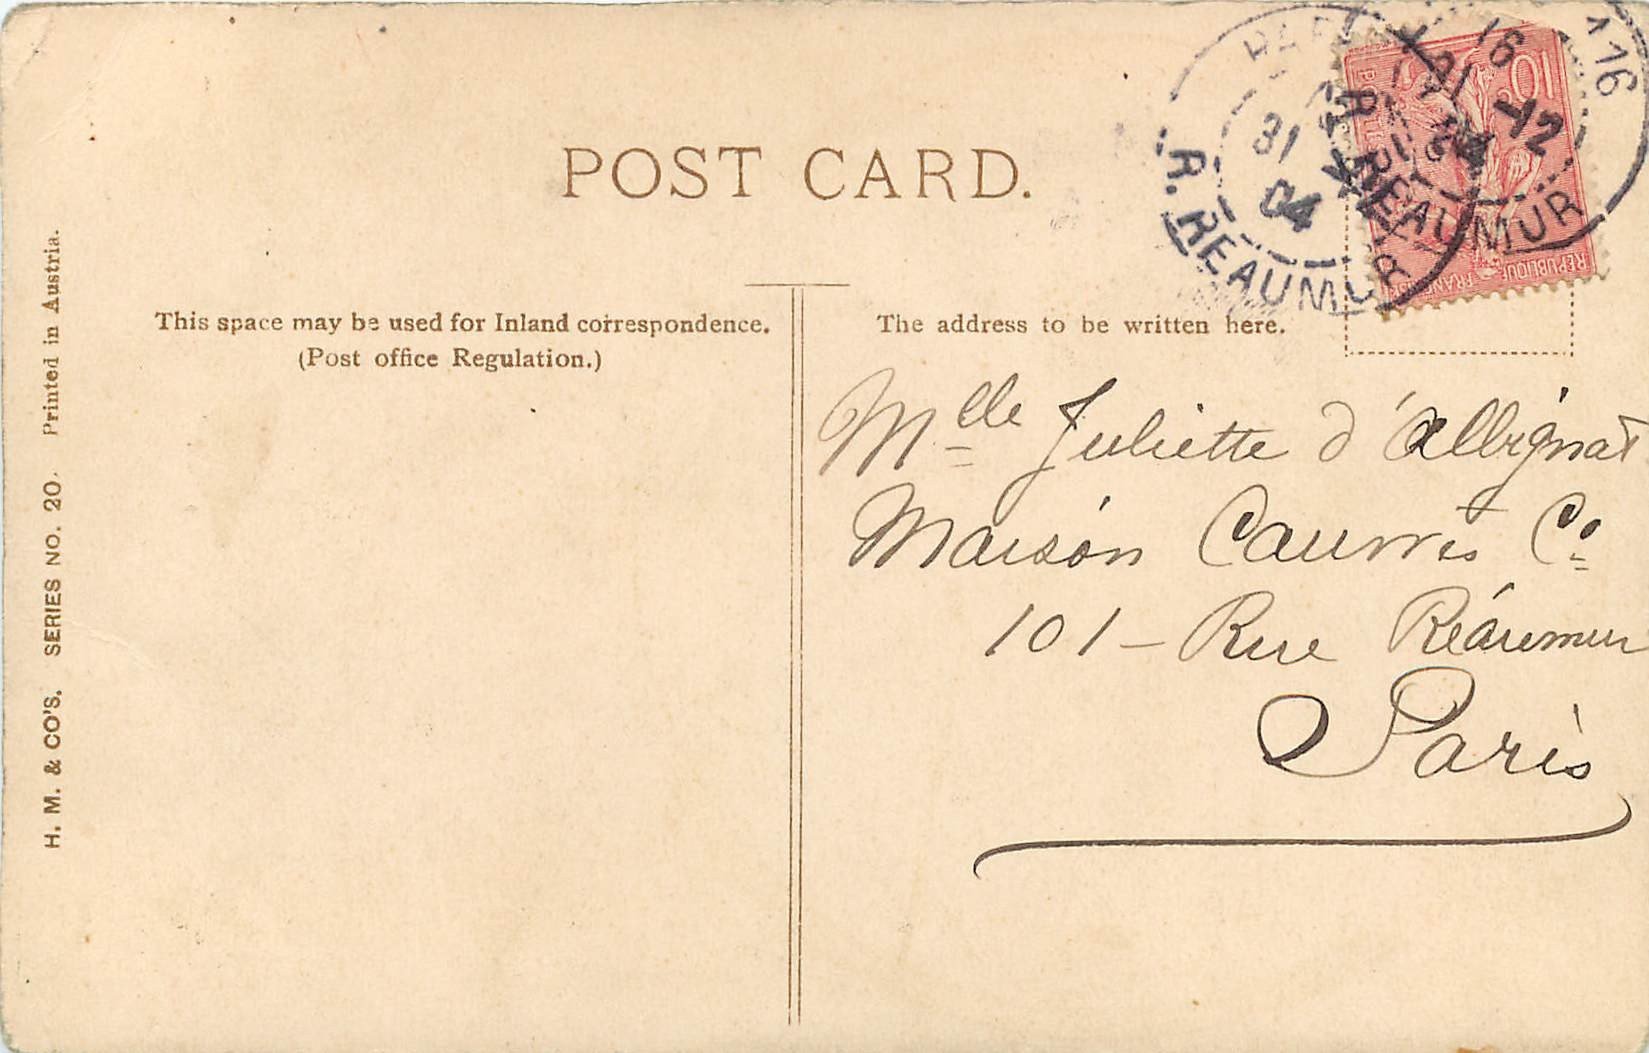 POST CARD.
This space may be used for Inland correspondence.
(Post office Regulation.)
The address to be written here.
H. M. & CO'S. SERIES NO. 20. Printed in Austria.
R. REAUMUR
31
04
R. REAUMUR
116
12
10
REPUBLIQUE FRANÇAISE
Mlle Juliette d'Albignat
Maison Co.
101 - Rue Réaumur
Paris